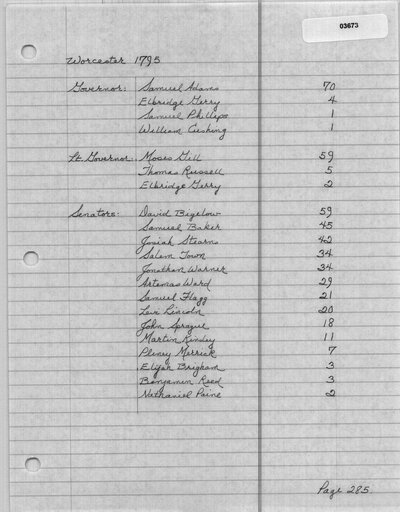 03673
Worcester 1795
Governor: Samuel Adams 70
Elbridge Gerry 4
Samuel Phillips 1
William Cushing 1
Lt Governor: Moses Gill 59
Thomas Russell 5
Elbridge Gerry 2
Senators: David Bigelow 59
Samuel Baker 45
Josiah Stearns 42
Salem Town 34
Jonathan Warner 34
Artemas Ward 29
Samuel Flagg 21
Levi Lincoln 20
John Sprague 18
Martin Kinsley 11
Pliney Merrick 7
Elijah Brigham 3
Benjamin Reed 3
Nathaniel Paine 2
Page 285.